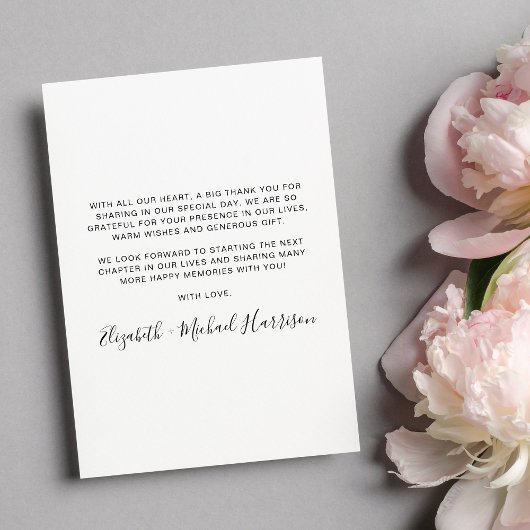 WITH ALL OUR HEART, A BIG THANK YOU FOR
SHARING IN OUR SPECIAL DAY. WE ARE SO
GRATEFUL FOR YOUR PRESENCE IN OUR LIVES,
WARM WISHES AND GENEROUS GIFT.
WE LOOK FORWARD TO STARTING THE NEXT
CHAPTER IN OUR LIVES AND SHARING MANY
MORE HAPPY MEMORIES WITH YOU!
WITH LOVE,
Elizabeth + Michael Harrison